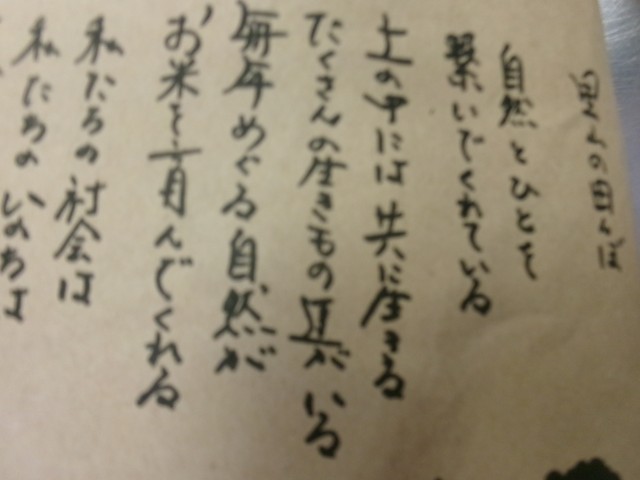 自然とひとを
繋いでくれている
土の中には共に生きる
たくさんの生きもの達がいる
毎年めぐる自然が
お米を育んでくれる
私たちの社会は
私たちのいのちは